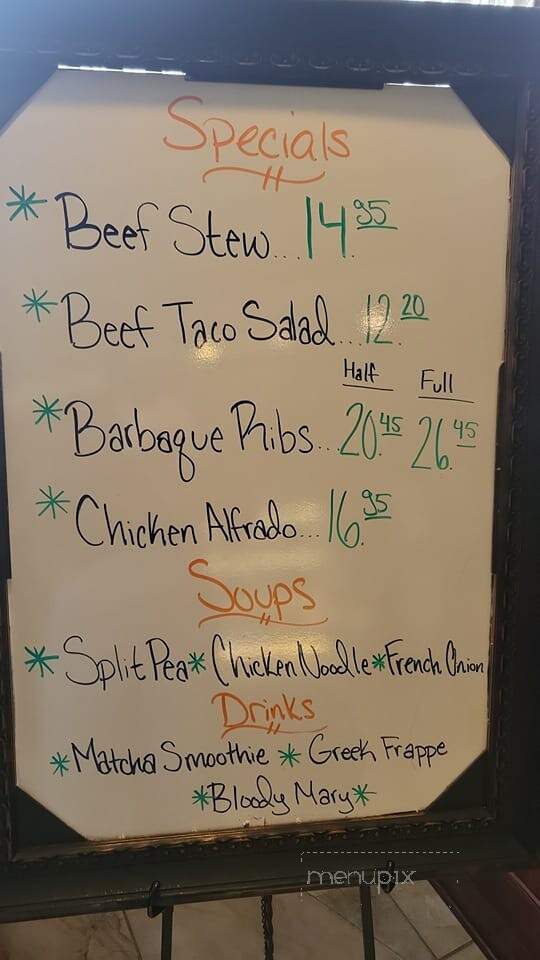 Specials
* Beef Stew... 14.95
* Beef Taco Salad... 12.20
Half Full
* Barbaque Ribs... 20.45 26.45
* Chicken Alfrado... 16.95
Soups
* Split Pea * Chicken Noodle * French Onion
Drinks
* Matcha Smoothie * Greek Frappe
* Bloody Mary *
menupix